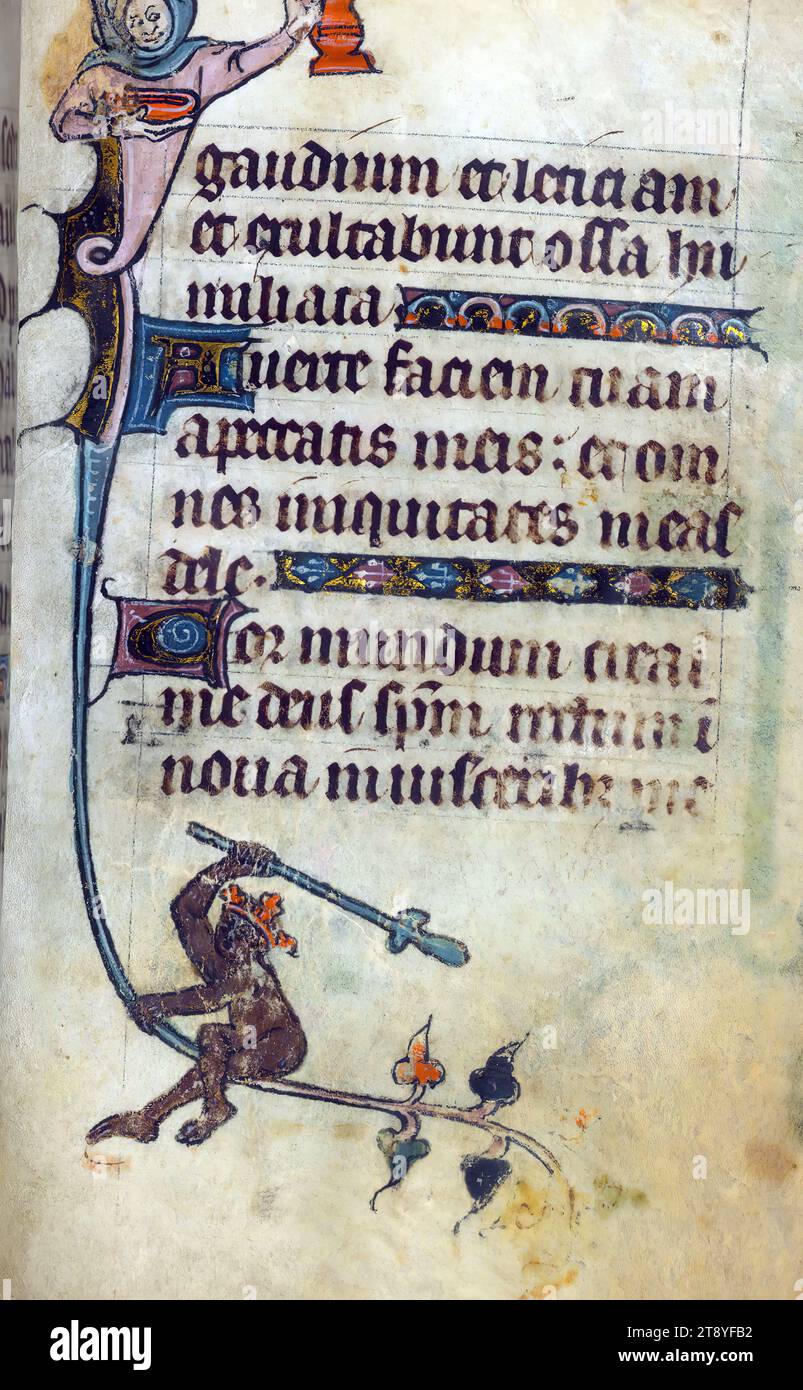 gaudium et leticiam
et exultabunt ossa hu
miliata
Auerte faciem tuam
apeccatis meis : et om
nes iniquitates meas
dele.
Cor mundum crea i
me deus spm rectum i
noua in uisceribz me
alamy
a
alamy
a
alamy
Image ID: 2T8YFB2
www.alamy.com